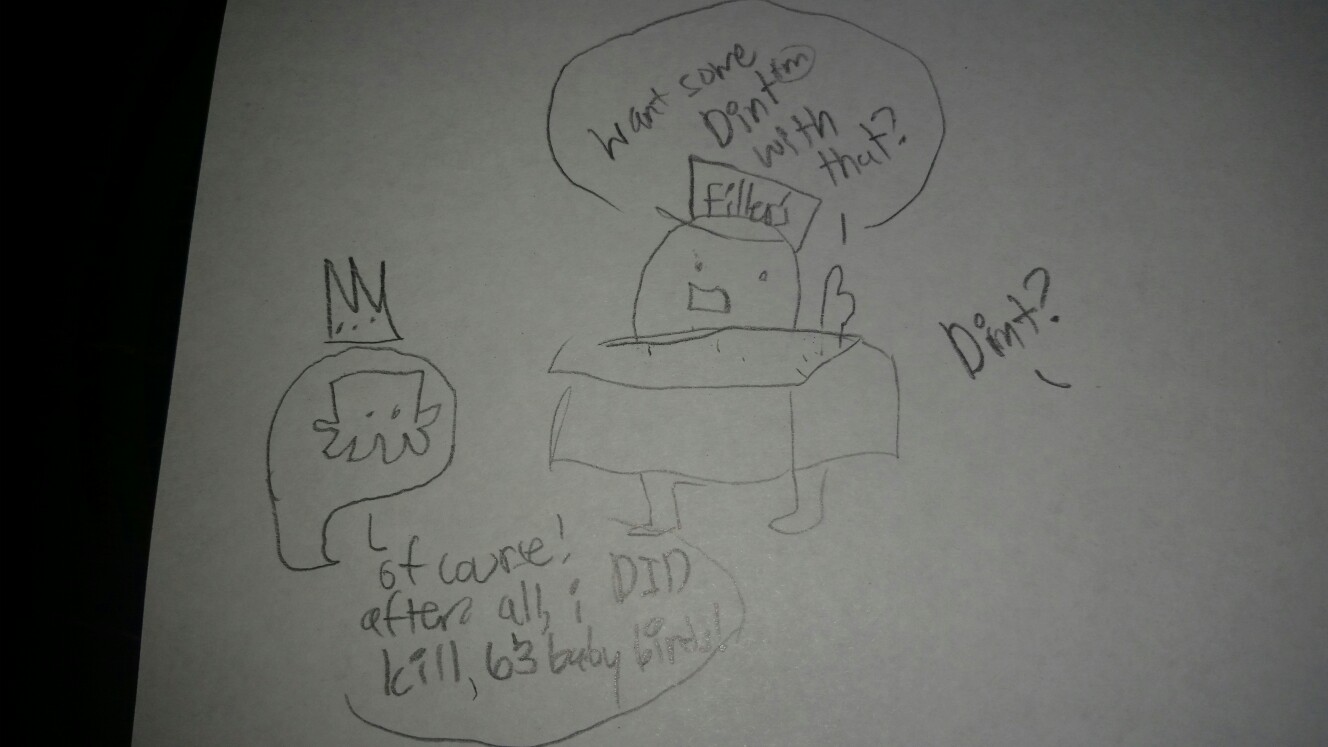 Want some
Dint tm
with
that?
Filler's
Dint?
of course!
after all, i DID
kill, 63 baby birds!